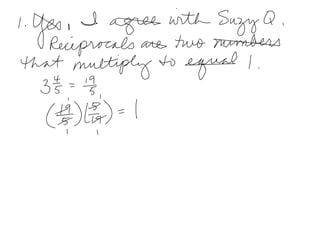 1. Yes, I agree with Suzy Q.
Reciprocals are two numbers
that multiply to equal 1.
3 4/5 = 19/5
(19/5)(5/19) = 1